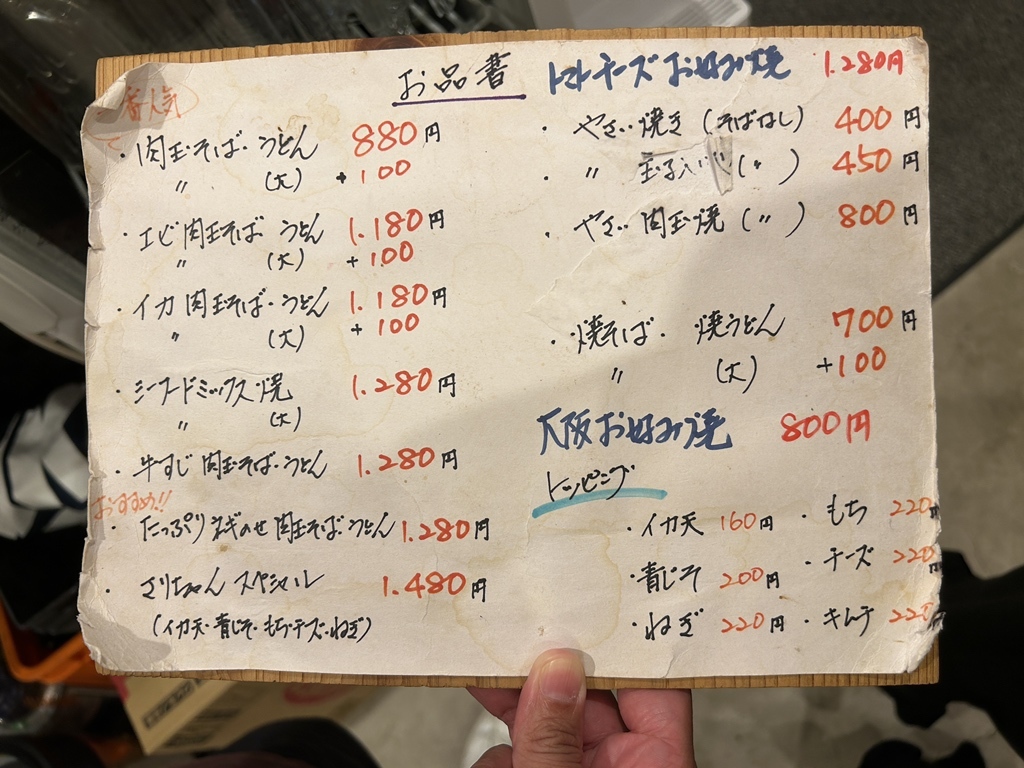 お品書
一番人気
・肉玉そば・うどん 880円
〃 (大) +100
・エビ肉玉そば うどん 1.180円
〃 (大) +100
・イカ肉玉そば・うどん 1.180円
〃 (大) +100
・シーフードミックス焼 1.280円
〃 (大)
・牛すじ肉玉そば・うどん 1.280円
おすすめ!!
・たっぷりネギのせ肉玉そば・うどん 1.280円
・さりちゃんスペシャル 1.480円
(イカ天・青じそ・もち・チーズ・ねぎ)
トマトチーズお好み焼 1.280円
・やさい焼き(そばなし) 400円
・〃 玉子入り(〃) 450円
・やさい肉玉焼(〃) 800円
・焼そば・焼うどん 700円
〃 (大) +100
大阪お好み焼 800円
トッピング
・イカ天 160円 ・もち 220円
・青じそ 200円 ・チーズ 220円
・ねぎ 220円 ・キムチ 220円